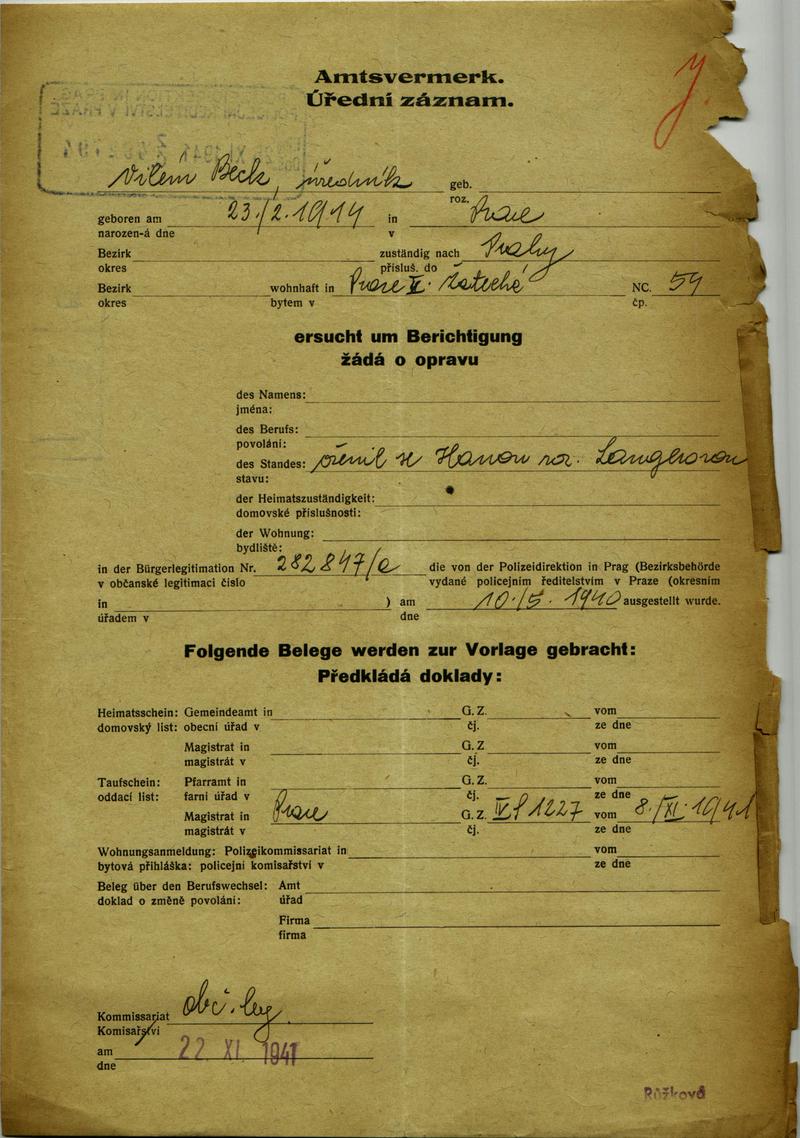 Amtsvermerk.
Úřední záznam.
Vilém Beck, úředník geb.
roz.
geboren am 23./2.1914 in Praze
narozen-á dne v
Bezirk zuständig nach Prahy
okres přísluš. do
Bezirk wohnhaft in Praze II. NC. 59
okres bytem v čp.
ersucht um Berichtigung
žádá o opravu
des Namens:
jména:
des Berufs:
povolání:
des Standes: ženil se Hanou roz. Langrovou
stavu:
der Heimatszuständigkeit:
domovské příslušnosti:
der Wohnung:
bydliště:
in der Bürgerlegitimation Nr. 282847/ die von der Polizeidirektion in Prag (Bezirksbehörde
v občanské legitimaci číslo vydané policejním ředitelstvím v Praze (okresním
in ) am 10./5. 1940 ausgestellt wurde.
úřadem v dne
Folgende Belege werden zur Vorlage gebracht:
Předkládá doklady:
Heimatsschein: Gemeindeamt in G. Z. vom
domovský list: obecní úřad v čj. ze dne
Magistrat in G. Z vom
magistrát v čj. ze dne
Taufschein: Pfarramt in G. Z. vom
oddací list: farní úřad v čj. ze dne
Magistrat in Praze G. Z. IV 1227 vom 8./XI. 1941
magistrát v čj. ze dne
Wohnungsanmeldung: Polizeikommissariat in vom
bytová přihláška: policejní komisařství v ze dne
Beleg über den Berufswechsel: Amt
doklad o změně povolání: úřad
Firma
firma
Kommissariat obč. leg.
Komisařství
am 22 XI. 1941
dne
Růžková